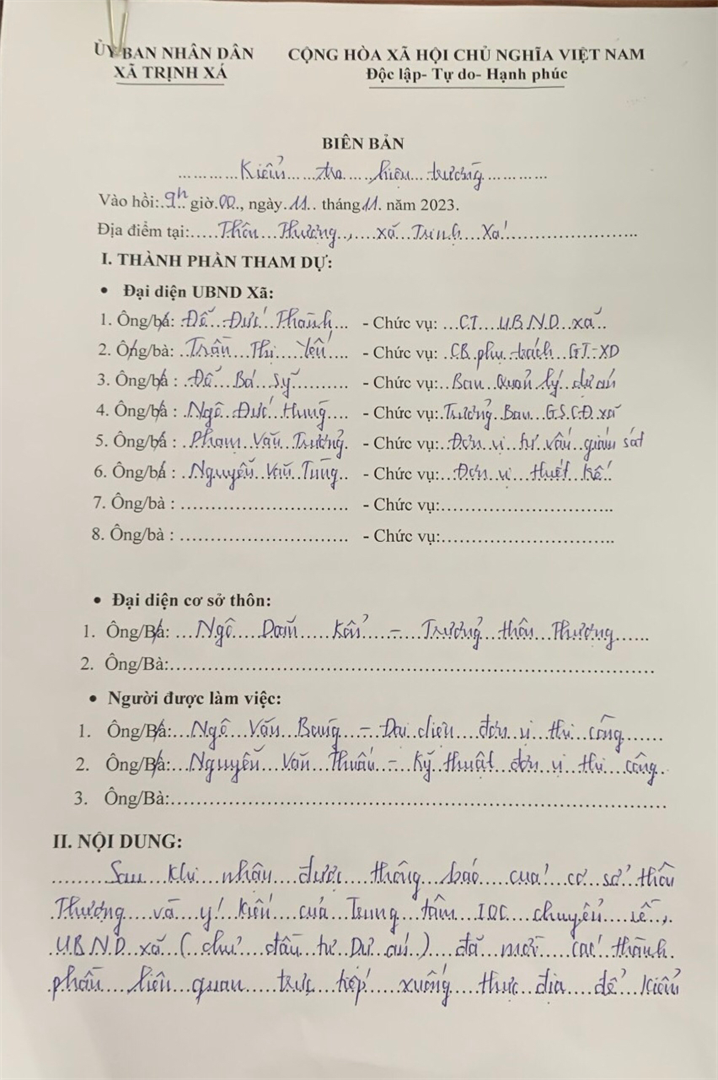 ỦY BAN NHÂN DÂN
XÃ TRỊNH XÁ
CỘNG HÒA XÃ HỘI CHỦ NGHĨA VIỆT NAM
Độc lập- Tự do- Hạnh phúc
BIÊN BẢN
Kiểm tra hiện trường
Vào hồi:.9h giờ.00., ngày.11.. tháng 11. năm 2023.
Địa điểm tại:.....Thôn Thượng, xã Trịnh Xá
I. THÀNH PHẦN THAM DỰ:
• Đại diện UBND Xã:
1. Ông/bà: Đức Thành - Chức vụ: CT UBND xã
2. Ông/bà: Trần Thị Yến - Chức vụ: CB phụ trách GT-XD
3. Ông/bà : Bá Sỹ - Chức vụ: Ban Quản lý dự án
4. Ông/bà : Ngô Đức Hưng - Chức vụ: Trưởng Ban GSCĐ xã
5. Ông/bà : Phạm Văn Trưởng - Chức vụ: Đơn vị tư vấn giám sát
6. Ông/bà : Nguyễn Văn Tùng - Chức vụ: Đơn vị thiết kế
7. Ông/bà : - Chức vụ:
8. Ông/bà : - Chức vụ:
• Đại diện cơ sở thôn:
1. Ông/Bà: Ngô - Trưởng thôn Thượng
2. Ông/Bà:
• Người được làm việc:
1. Ông/Bà: Ngô Văn - Đại diện đơn vị thi công
2. Ông/Bà: Nguyễn Văn - Kỹ thuật đơn vị thi công
3. Ông/Bà:
II. NỘI DUNG:
Sau khi nhận được thông báo của cơ sở thôn
Thượng và ý kiến của Trung tâm IOC chuyển về,
UBND xã (chủ đầu tư Dự án) đã mời các thành
phần liên quan trực tiếp xuống thực địa để kiểm